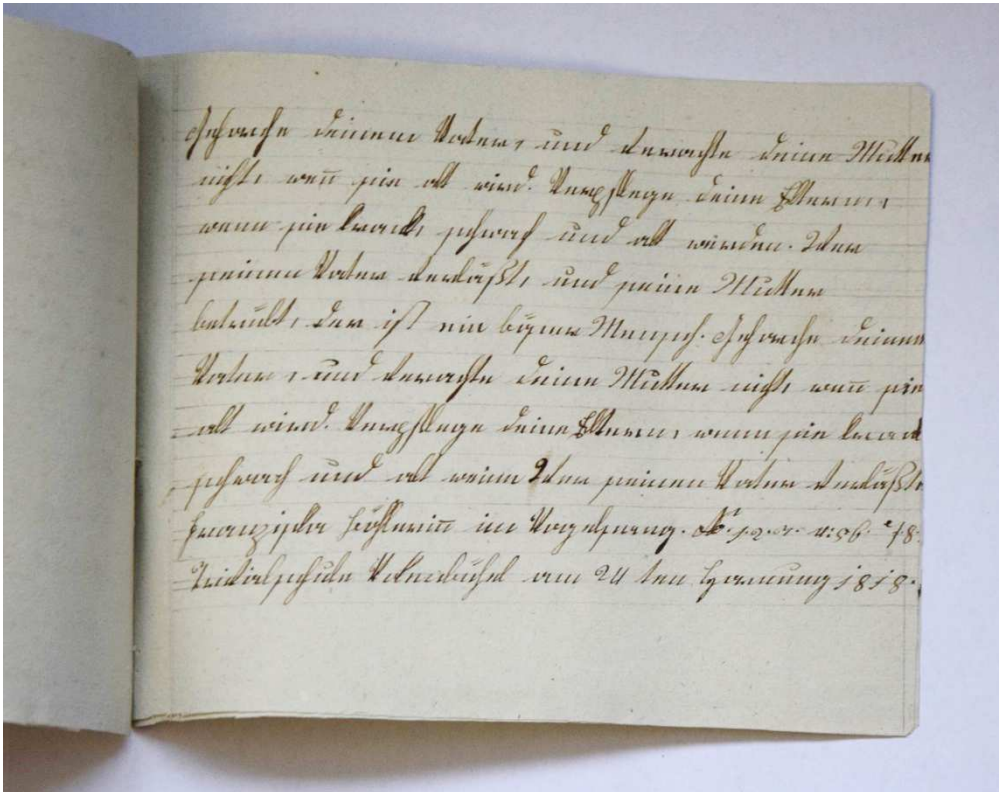 Gehorche deinem Vater, und verachte deine Mutter
nicht, weñ sie alt wird. Verpflege deine Eltern,
wenn sie krank, schwach und alt werden. Wer
seinen Vater verläßt, und seine Mutter
betrübt, der ist ein böser Mensch. Gehorche deinem
Vater, und verachte deine Mutter nicht, weñ sie
alt wird. Verpflege deine Eltern, wenn sie krank
schwach und alt Wer seinen Vater verläßt,
Franziska im Vogelsang.
Trivialschule am 24 ten Hornung 1818.